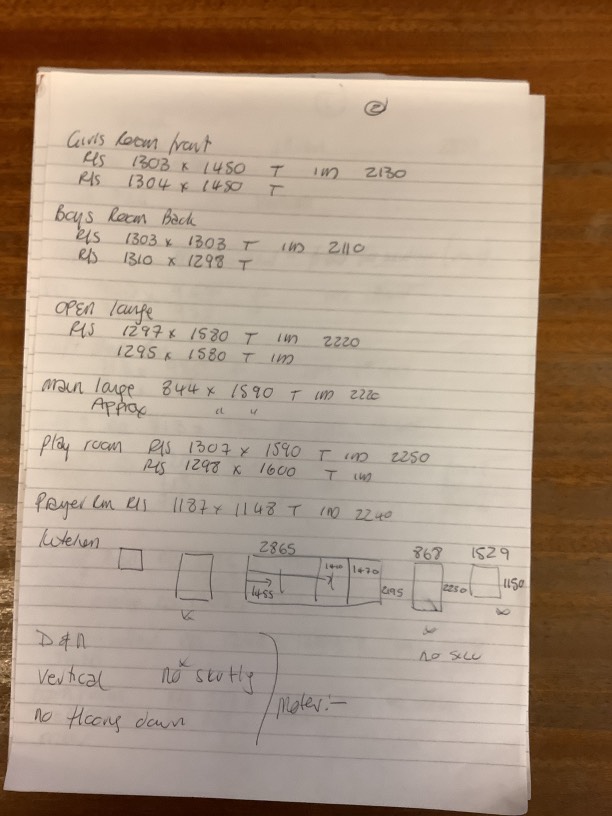 2
Girls Room front
R/S 1303 x 1450 T IM 2130
R/S 1304 x 1450 T
Boys Room Back
R/S 1303 x 1303 T IM 2110
R/S 1310 x 1298 T
OPEN large
R/S 1297 x 1580 T IM 2220
1295 x 1580 T IM
Main large 844 x 1590 T IM 2220
Approx " "
Play room R/S 1307 x 1590 T IM 2250
R/S 1298 x 1600 T IM
Prayer Rm R/S 1187 x 1148 T IM 2240
Kitchen
2865 868 1529
1470
1455 2195 2250 1150
no
vertical no
no down